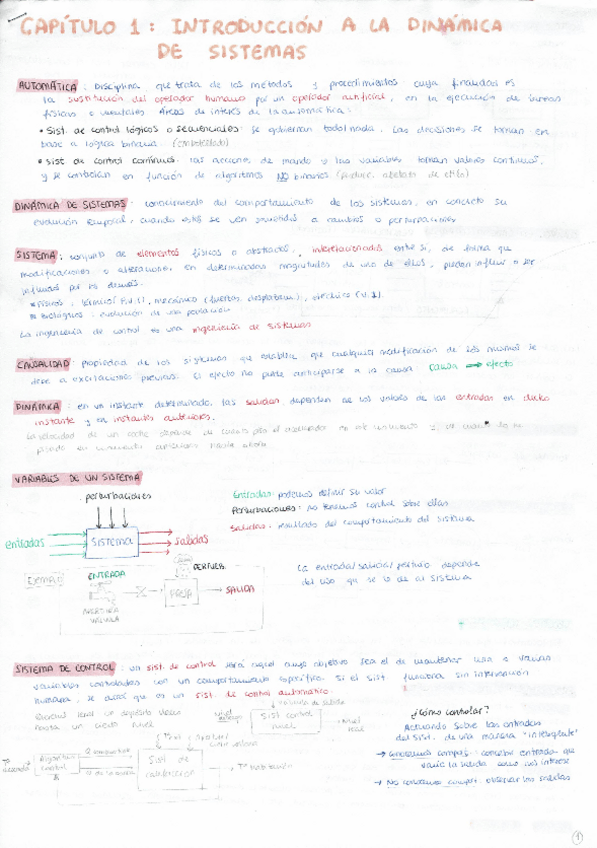 CAPÍTULO 1: INTRODUCCIÓN A LA DINÁMICA
DE SISTEMAS
AUTOMÁTICA: Disciplina que trata de los métodos y procedimientos cuya finalidad es
la sustitución del operador humano por un operador artificial, en la ejecución de tareas
físicas o mentales. Áreas de interés de la automática:
• Sist. de control lógicos o secuenciales: se gobiernan todo/nada. Las decisiones se toman en
base a lógica binaria.
• Sist de control continuos: las acciones de mando y las variables toman valores continuos,
y se controlan en función de algoritmos NO binarios.
DINÁMICA DE SISTEMAS: conocimiento del comportamiento de los sistemas, en concreto su
evolución temporal, cuando estos se ven sometidos a cambios o perturbaciones
SISTEMA: conjunto de elementos físicos o abstractos, interrelacionados entre sí, de forma que
modificaciones o alteraciones en determinadas magnitudes de uno de ellos, puedan influir o ser
influidos por los demás.
• Físicos: térmico, mecánico (fuerzas, desplazam.), eléctrico (V, I).
• Biológicos: evolución de una población
La ingeniería de control es una ingeniería de sistemas
CAUSALIDAD: propiedad de los sistemas que establece que cualquier modificación de los mismos se
debe a excitaciones previas. El efecto no puede anticiparse a la causa. causa → efecto
DINÁMICA: en un instante determinado, las salidas dependen de los valores de las entradas en dicho
instante y en instantes anteriores.
La velocidad de un coche depende de cuanto piso el acelerador en ese momento y de cuanto lo he
pisado en momentos anteriores hasta ahora
VARIABLES DE UN SISTEMA
perturbaciones
entradas
SISTEMA
salidas
Entradas: podemos definir su valor
Perturbaciones: no tenemos control sobre ellas
Salidas: resultado del comportamiento del sistema
La entrada/salida/perturb depende
del uso que se le da al sistema
Ejemplo:
ENTRADA
APERTURA
VÁLVULA
PERTURB.
PRESA
SALIDA
SISTEMA DE CONTROL: un sist. de control será aquel cuyo objetivo sea el de mantener una o varias
variables controladas con un comportamiento específico. Si el sist. funciona sin intervención
humana, se dice que es un sist. de control automático.
Quiero llenar un depósito
hasta un cierto nivel
nivel
Sist control
nivel
Nivel
real
Algoritmo
control
Sist de
calefacción
Tª habitación
¿Cómo controlar?
Actuando sobre las entradas
del sist. de una manera "inteligente"
→ Conocemos comport.: concebir entrada que
varíe la salida como nos interese
→ No conocemos comport.: observar las salidas
1